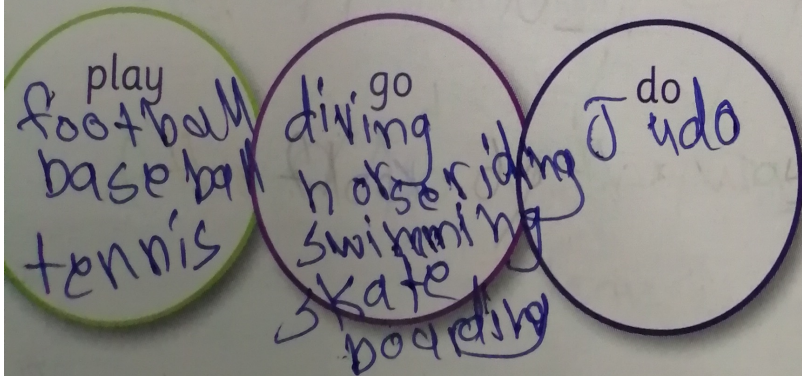 play
football
baseball
tennis
go
diving
horseriding
swimming
skate
boarding
do
Judo